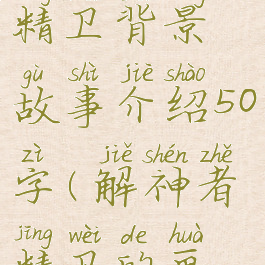 精卫背景
gù shì jiè shào
故事介绍50
zì jiě shén zhě
字(解神者
jīng wèi de huà
精卫的画